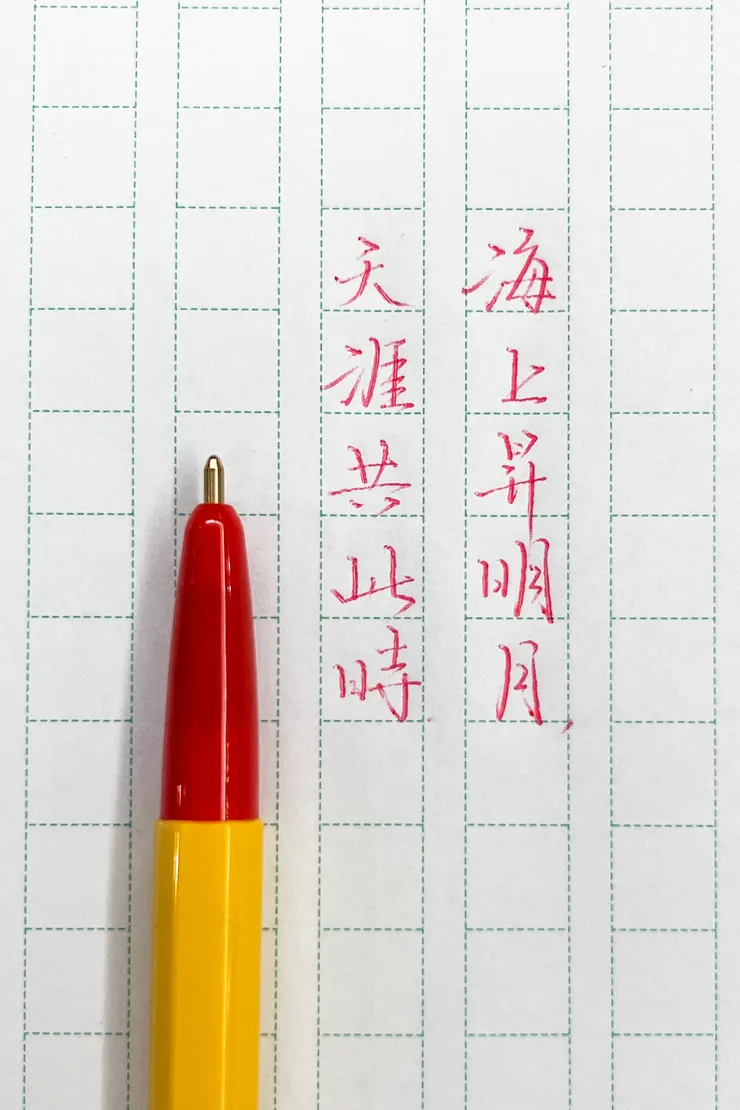 海上昇明月，
天涯共此時.